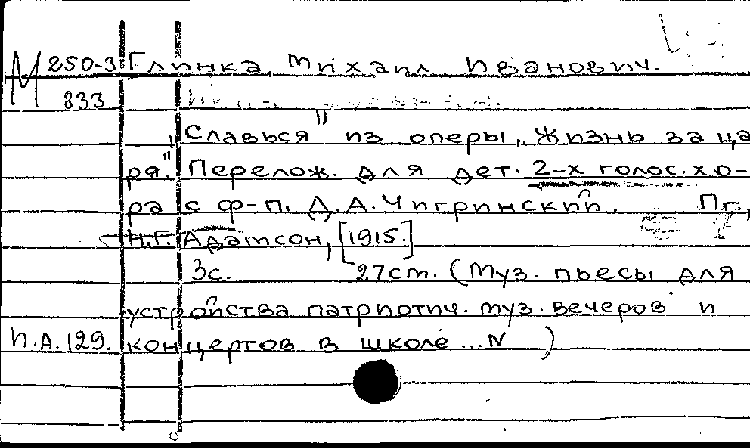 М 250-3 Глинка, Михаил Иванович.
833
„Славься" из оперы „Жизнь за ца
ря." Перелож. для дет. 2-х голос. хо-
ра с ф-п. Д. А. Чигринский. Пг.,
Н.Г. Адамсон, [1915.]
3с. 27cm. (Муз. пьесы для
устройства патриотич. муз. вечеров и
п.А.129. концертов в школе ... N )